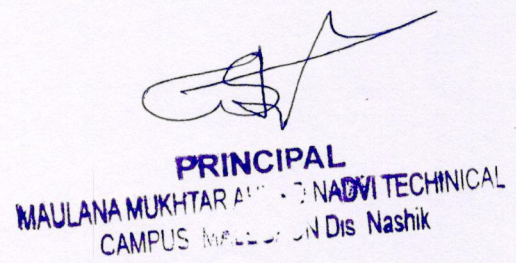 PRINCIPAL
MAULANA MUKHTAR NADVI TECHINICAL
CAMPUS Dis Nashik